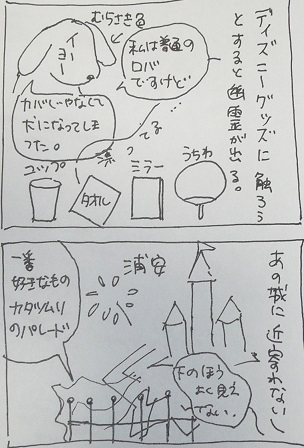 ディズニーグッズに触ろう
とすると幽霊が出る。
むらさきる
イーヨー
私は普通の
ロバ
ですけど
カバじゃなくて
犬になってしま
った。
てる
コップ
タオル
ミラー
うちわ
あの城に近寄れない
浦安
一番
好きなもの
カタツムリ
のパレード
下のほう
よく見え
てない。